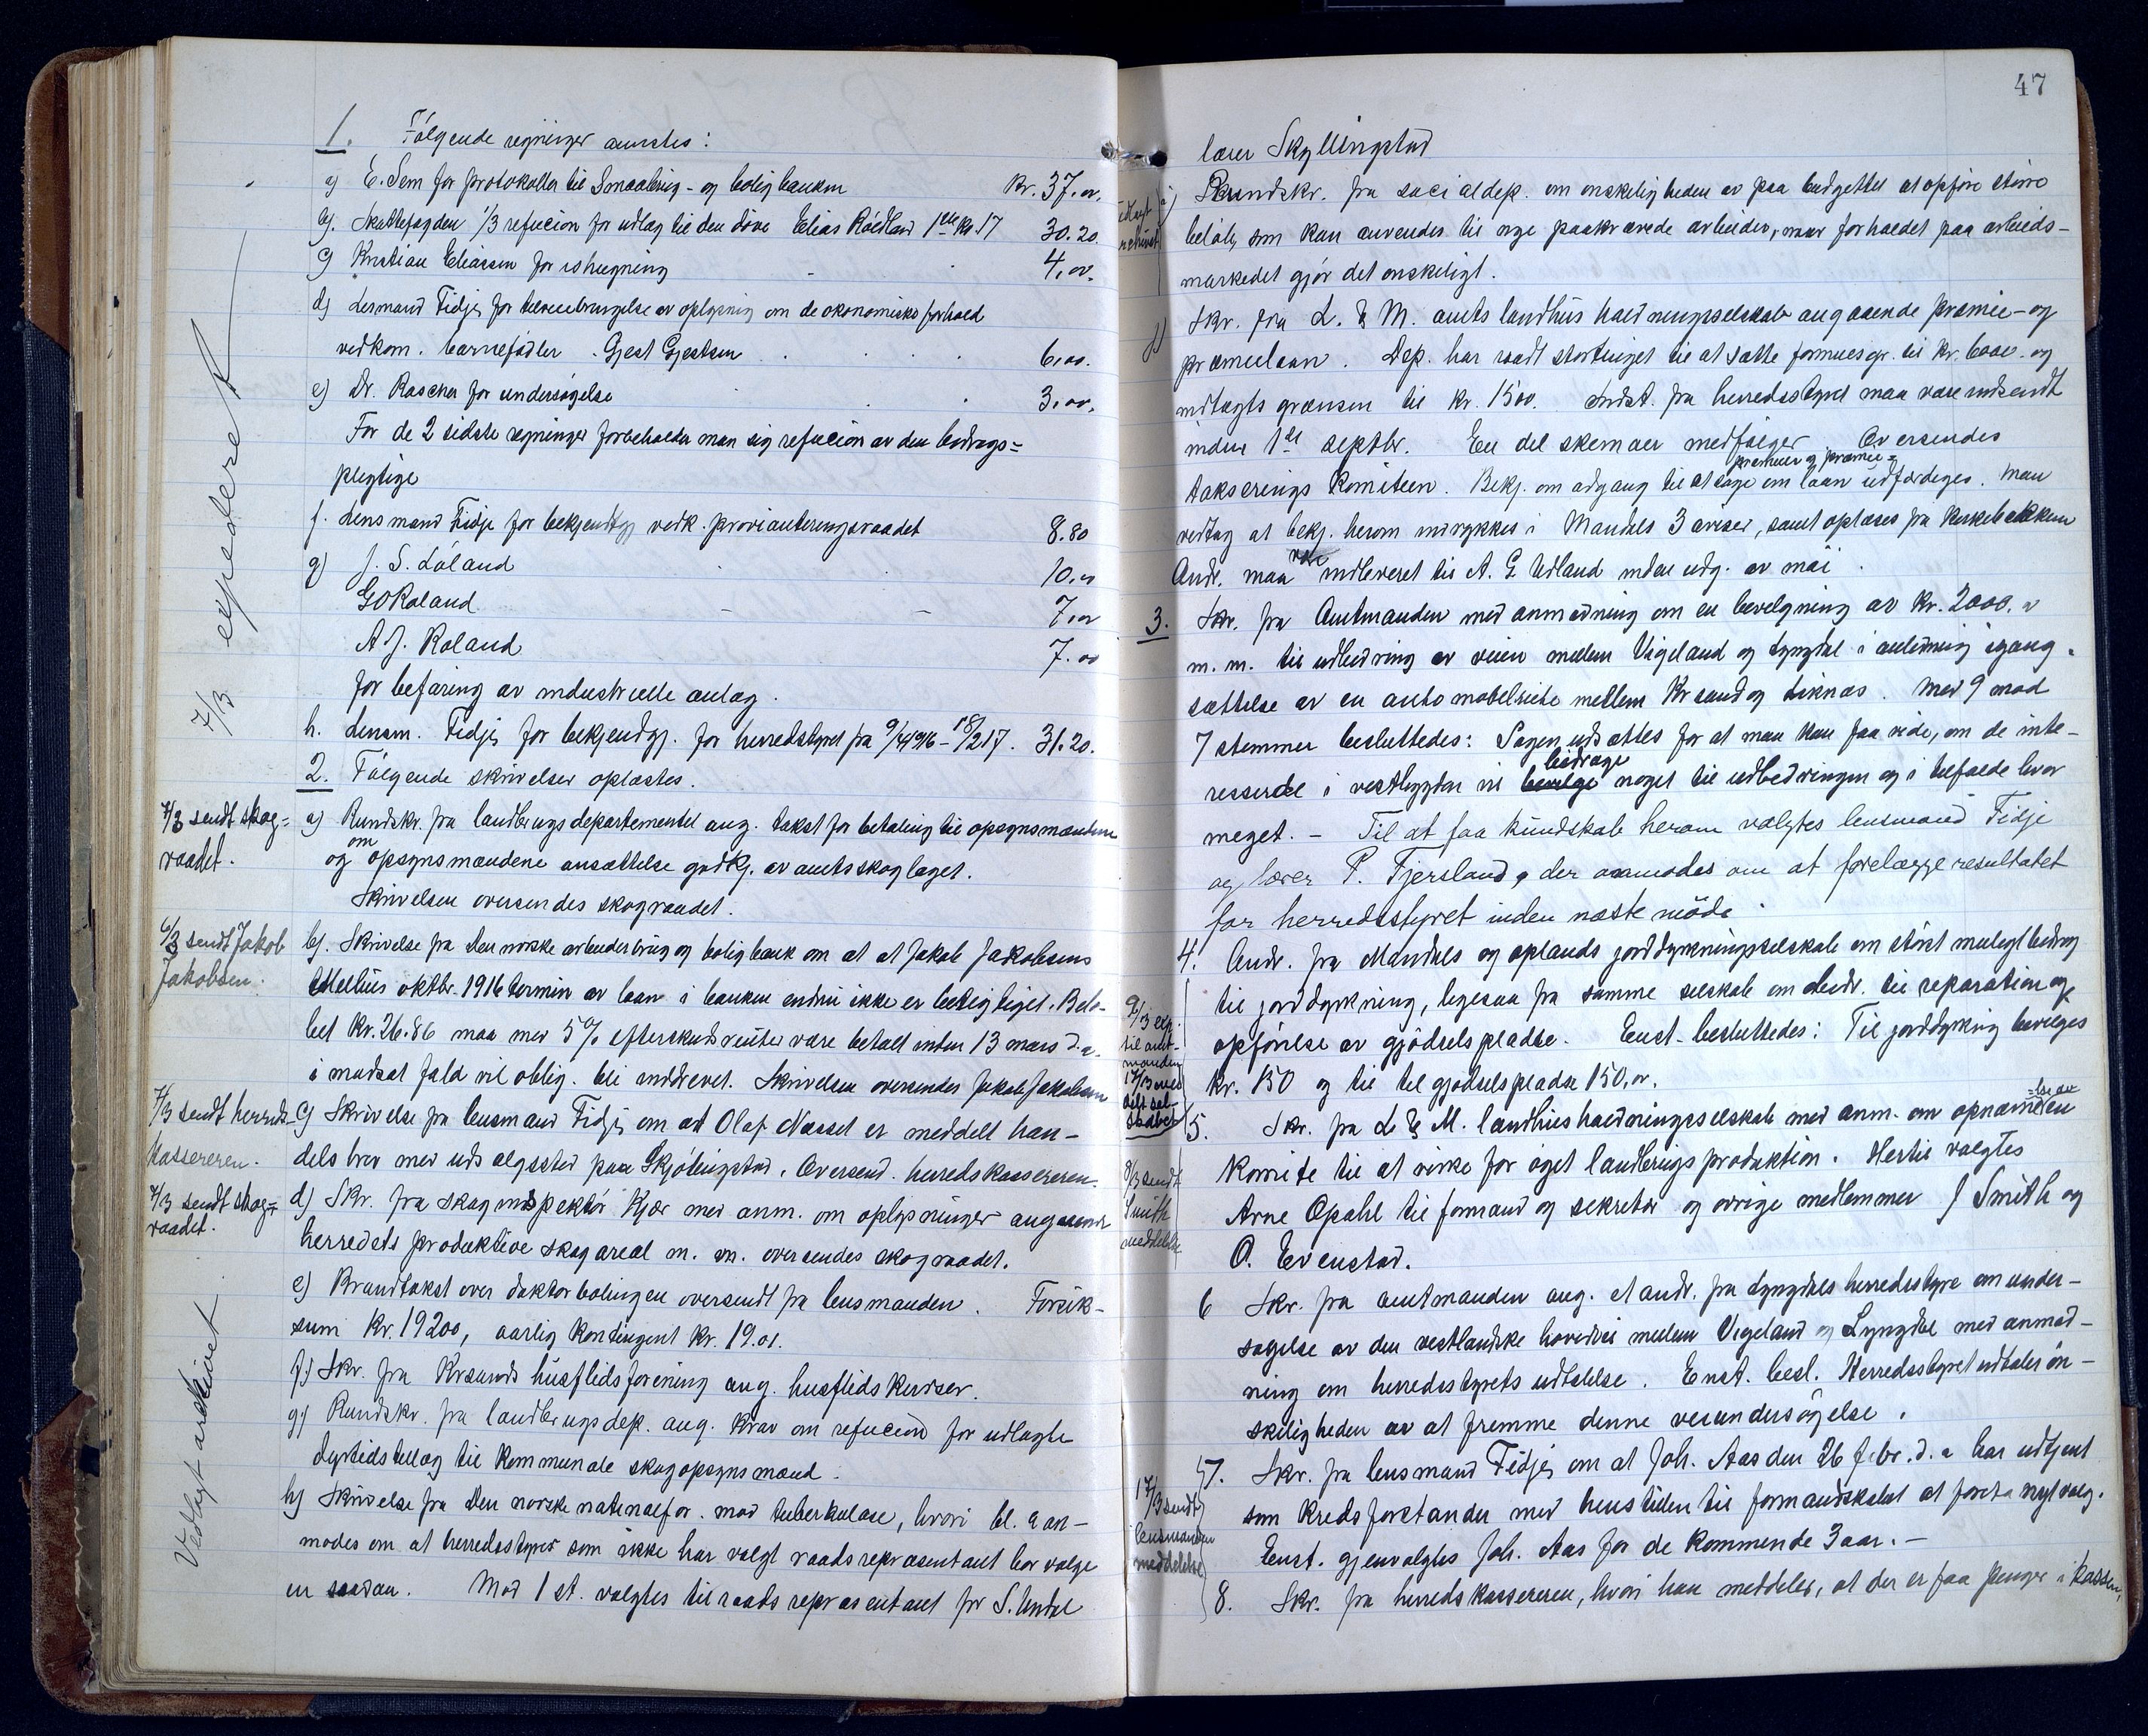 1. Følgende regninger anvistes:
a) E. Sem for protokoller til Smaabrug- og boligbanken Kr. 37.00.
b). Skattefogden 1/3 refucion for udlag til den døve Elias Rødland 1ste kv. 17 30.20.
c) Kristian Eliassen for ishugning 4.00.
d) Lensmand Fidje for tilveiebringelse av oplysning om de økonomiske forhold
vedkom. barnefødler Gjest Gjestsen 6.00.
e) Dr. Rascher for undersøgelse 3.00.
For de 2 sidste regninger forbeholder man sig refucion av den bidrags=
pligtige
f. Lensmand Fidje for bekjendtgj vedk. provianteringsraadet 8.80
g) J. S. Løland 10.00
G O Roland 7.00
A J. Roland 7.00
for befaring av industrielle anlæg.
h. Lensm. Fidje for bekjendgj. for herredstyret fra 9/4 1916 - 18/2 17. 31.20.
7/3 expederet
2. Følgende skrivelser oplæstes.
7/3 sendt skog=
raadet.
a) Rundskr. fra landbrugsdepartementet ang. takst for betaling til opsynsmændene
og om opsynsmændene ansættelse godkj. av amtsskoglaget.
Skrivelsen oversendes skograadet.
6/3 sendt Jakob
Jakobsen.
b). Skrivelse fra Den norske arbeiderbrug og boligbank om at at Jakob Jakobsens
Mellius oktbr. 1916 termin av laan i banken endnu ikke er berigtiget. Belø-
bet Kr. 26.86 maa med 5% efterskudsrenter være betalt inden 13 mars d.a.
i modsat fald vil oblig. bli inddrevet. Skrivelsen oversendes Jakob Jakobsen
7/3 sendt herreds-
kassereren.
c) Skrivelse fra lensmand Fidje om at Olaf Næsset er meddelt han-
delsbrev med udsalgssted paa Skjølingstad. Oversend. herredskassereren.
7/3 sendt skog=
raadet.
d) Skr. fra skoginspektør Kjær med anm. om oplysninger angaaende
herredets produktive skogareal m. m. oversendes skograadet.
e) Brandtakst over doktorboligen oversendt fra lensmanden. Forsik-
sum Kr. 19200, aarlig kontingent Kr. 19.01.
f.) Skr. fra Krsands husflidsforening ang. husflidskurser.
g.) Rundskr. fra landbrugsdep. ang. krav om refucion for udlagte
dyrtidstillæg til kommunale skogopsynsmænd.
Vedlagt arkivet
h) Skrivelse fra Den norske nationalfor. mod tuberkulose, hvori bl. a an-
modes om at herredsstyret som ikke har valgt raadsrepræsentant bør vælge
en saadan. Mod 1 st. valgtes til raadsrepræsentant fr S. Undal
47
lærer Skyllingstad
vedlagt
archivet
i) Rundskr. fra socialdep. om ønskeligheden av paa budgettet at opføre større
beløb, som kan anvendes til nye paakrævede arbeider, naar forholdet paa arbeids-
markedet gjør det ønskeligt.
j) Skr. fra L. & M. amts landhusholdningsselskab angaaende præmie- og
præmielaan. Dep. har raadt stortinget til at sætte formuesgr. til kr. 6000. og
indtægtsgrænsen til kr. 1500. Indst. fra herredsstyret maa være indsendt
inden 1ste septbr. En del skemaer medfølger. Oversendes
takseringskomiteen. Bekj. om adgang til at søge om præmier og præmie= laan udfærdiges. Man
vedtog at bekj. herom indrykkes i Mandals 3 aviser, samt oplæses fra kirkebakken
Andr. maa være indleveret til A. G. Udland inden udg. av mai.
3. Skr. fra Amtmanden med anmodning om en bevilgning av kr. 2000.
m. m. til udbedring av veien mellem Vigeland og Lyngdal i anledning igang-
sættelse av en automobilrute mellem Kr sand og Liknæs. Med 9 mod
7 stemmer besluttedes: Sagen udsættes for at man kan faa vide, om de inte-
resserede i vestbygden vil bidrage noget til udbedringen og i tilfælde hvor
meget. - Til at faa kundskab herom valgtes lensmand Fidje
og lærer P. Fjersland, der anmodes om at forelægge resultatet
for herredsstyret inden næste møde.
4. Andr. fra Mandals og oplands jorddyrkningsselskab om størst muligt bidrag
til jorddyrkning, ligesaa fra samme selskab om bidr. til reparation og
opførelse av gjødselspladse. Enst. besluttedes: Til jorddyrkning bevilges
kr. 150 og til gjødselspladse 150.00.
9/3 exp.
til amt-
manden
17/3 med
delt sel-
skabet
5. Skr. fra L & M. landhusholdningsselskab med anm. om opnævnelse av en
komite til at virke for øget landbrugsproduktion. Hertil valgtes
Arne Opahl til formand og sekretær og øvrige medlemmer J Smith og
O. Evenstad.
9/3 sendt
Smith
meddelelse
6 Skr. fra amtmanden ang. et andr. fra Lyngdals herredsstyre om under-
søgelse av den vestlandske hovedvei mellem Vigeland og Lyngdal med anmod-
ning om herredsstyrets udtalelse. Enst. besl. Herredsstyret udtaler øn-
skeligheden av at fremme denne veiundersøgelse.
17/3 sendt
lensmanden
meddelelse
7. Skr. fra lensmand Fidje om at Joh. Aas den 26 febr. d. a har udtjent
som kredsforstander med henstillen til formandskabet at foreta nyt valg.
Enst. gjenvalgtes Joh. Aas for de kommende 3 aar. -
8. Skr. fra herredskassereren, hvori han meddeler, at der er faa penger i kassen,